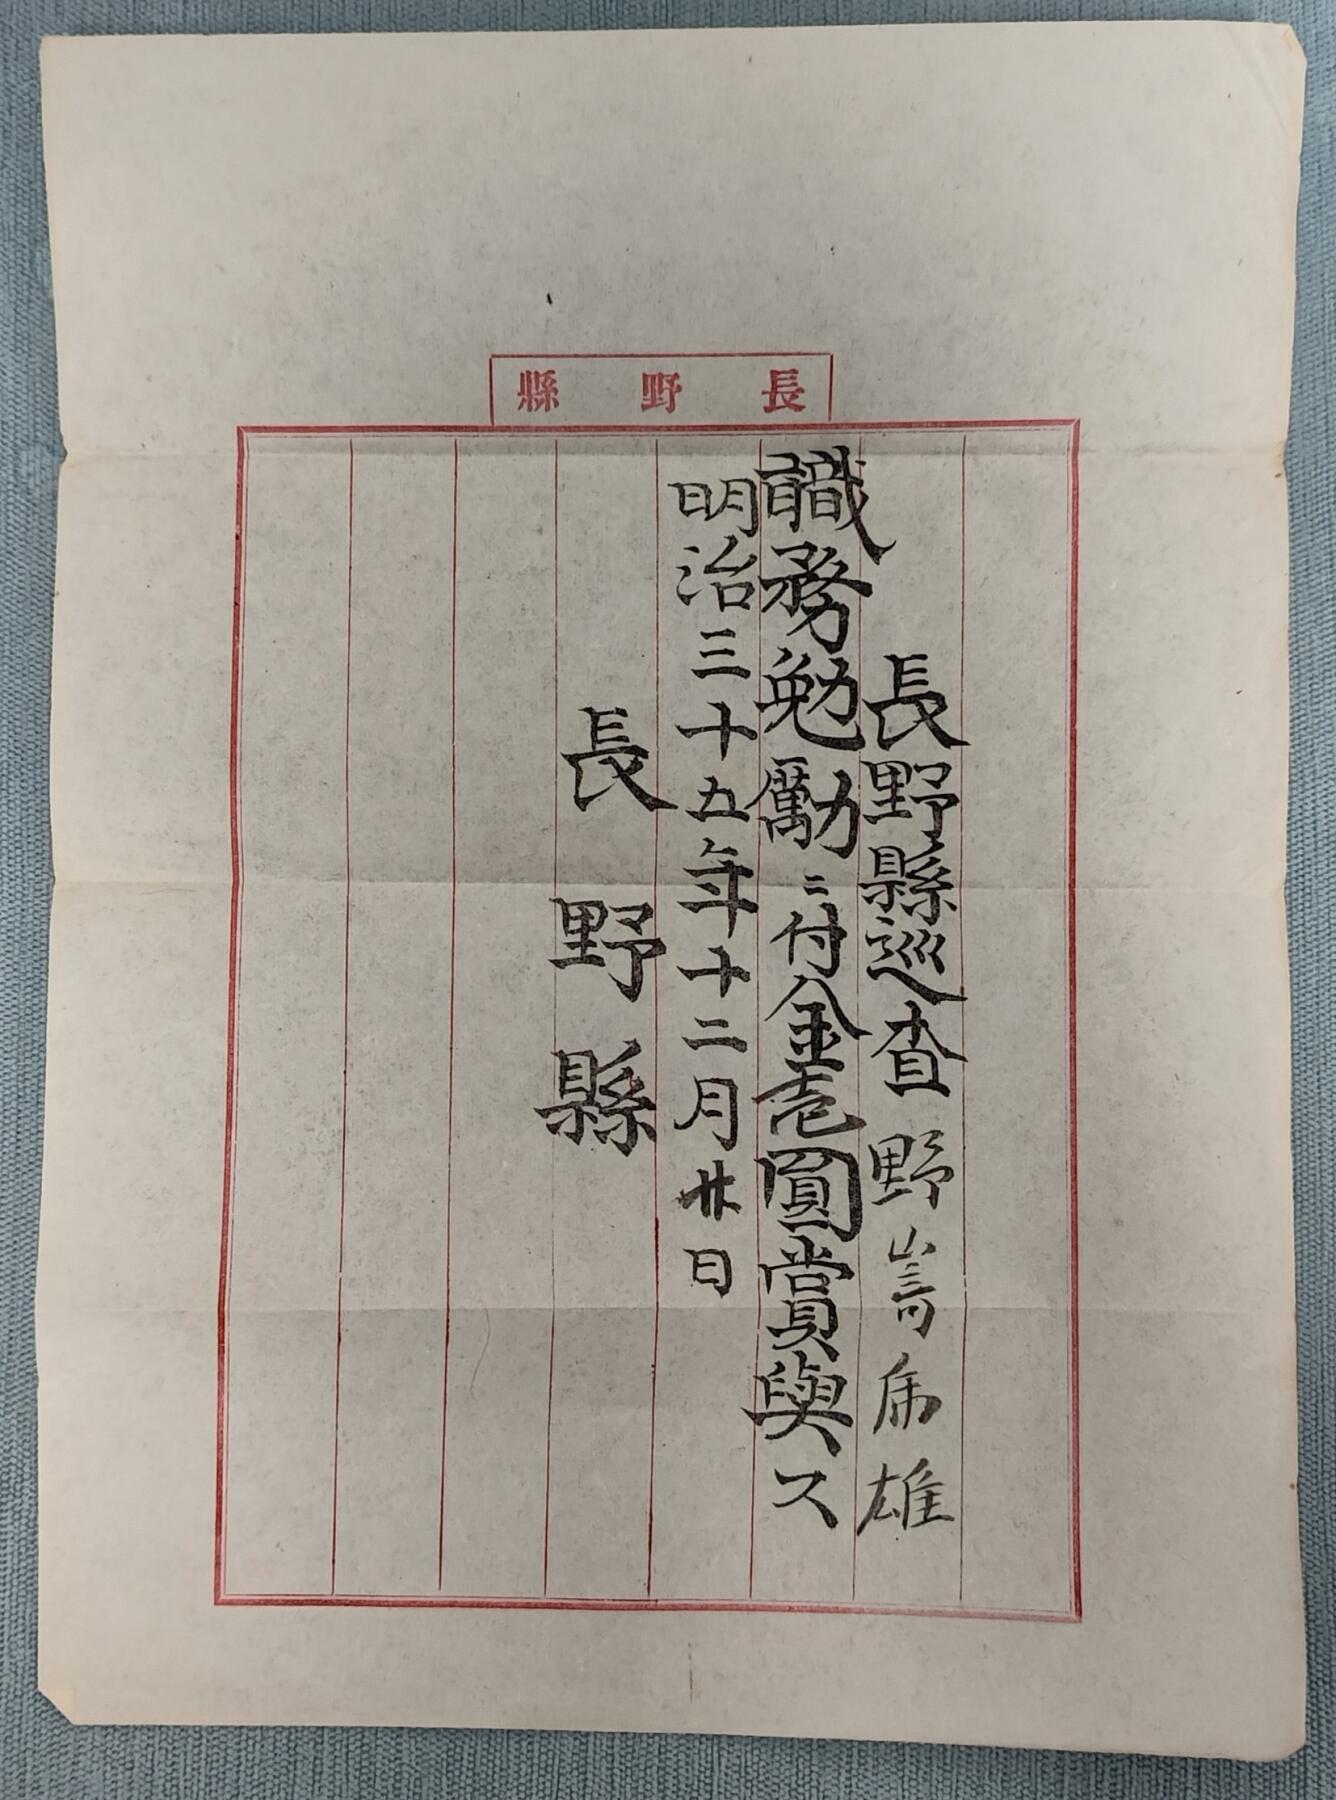 長野縣
長野縣巡査 野嵜乕雄
職務勉勵ニ付金壱圓賞與ス
明治三十五年十二月廿日
長野縣